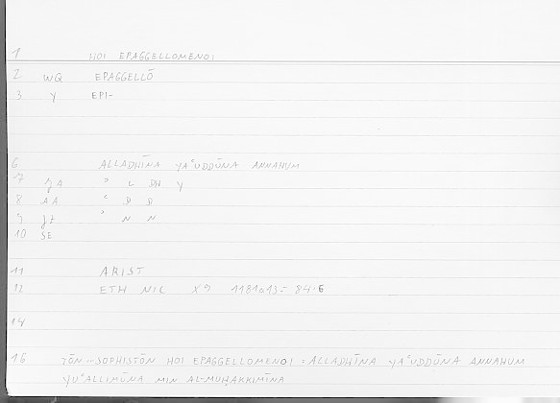 1 HOI EPAGGELLOMENOI
2 WQ EPAGGELLŌ
3 Y EPI-
6 ALLADHĪNA YAʿUDDŪNA ANNAHUM
7 ʾ L DH Y
8 AA ʿ D D
9 ʾ N N
10 SE
11 ARIST
12 ETH NIC X 9 1181a13 = 84.6
14
16 TŌN – SOFHISTŌN HOI EPAGGELLOMENOI = ALLADHĪNA YAʿUDDŪNA ANNAHUM
YUʿALLIMŪNA MIN AL-MUḤAKKIMĪNA